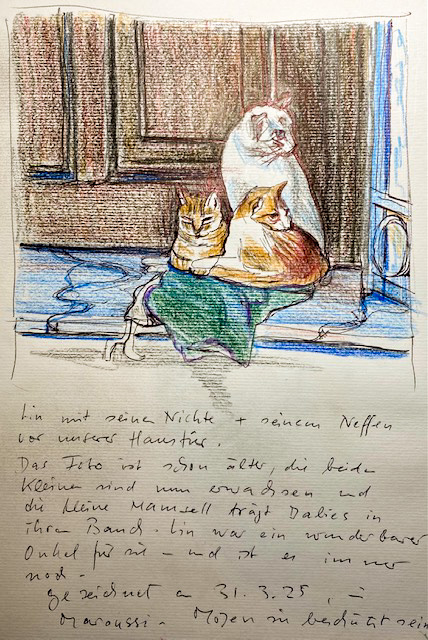 Lin mit seiner Nichte + seinem Neffen
vor unserer Haustür.
Das Foto ist schon älter, die beiden
Kleinen sind nun erwachsen und
die kleine Mamsell trägt Babies in
ihrem Bauch. Lin war ein wunderbarer
Onkel für sie – und ist es immer
noch.
gezeichnet am 31.3.25, in
Maroussi. Mögen sie beschützt sein